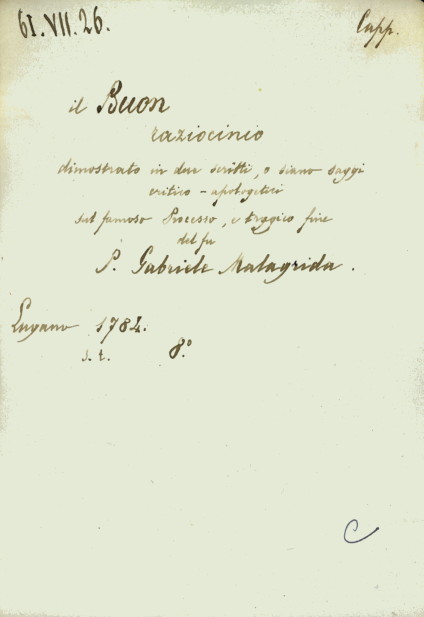 61.VII.26. Capp.
il Buon
raziocinio
dimostrato in due scritti, o siano saggi
critico-apologetici
sul famoso Processo, e tragico fine
del fu
P. Gabriele Malagrida.
Lugano 1784.
s. t. 8.º
C